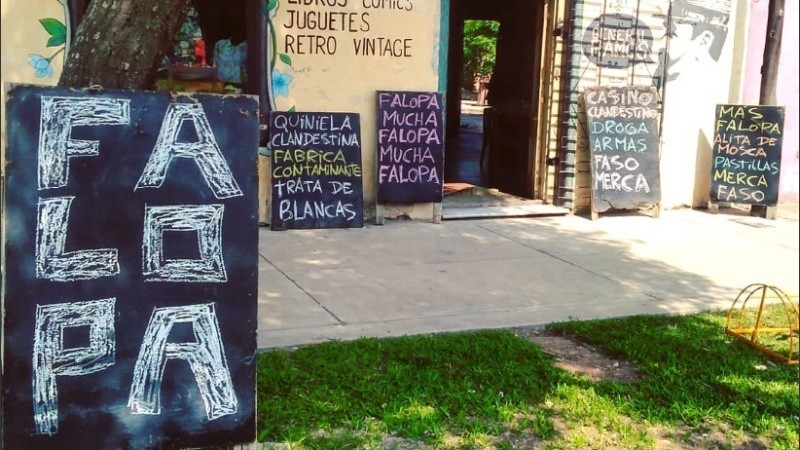 LIBROS COMICS
JUGUETES
RETRO VINTAGE
FA
LO
PA
QUINIELA
CLANDESTINA
FABRICA
CONTAMINANTE
TRATA DE
BLANCAS
FALOPA
MUCHA
FALOPA
MUCHA
FALOPA
CASINO
CLANDESTINO
DROGA
ARMAS
FASO
MERCA
MAS
FALOPA
ALITA DE
MOSCA
PASTILLAS
MERCA
FASO
GENERAL
RAMOS